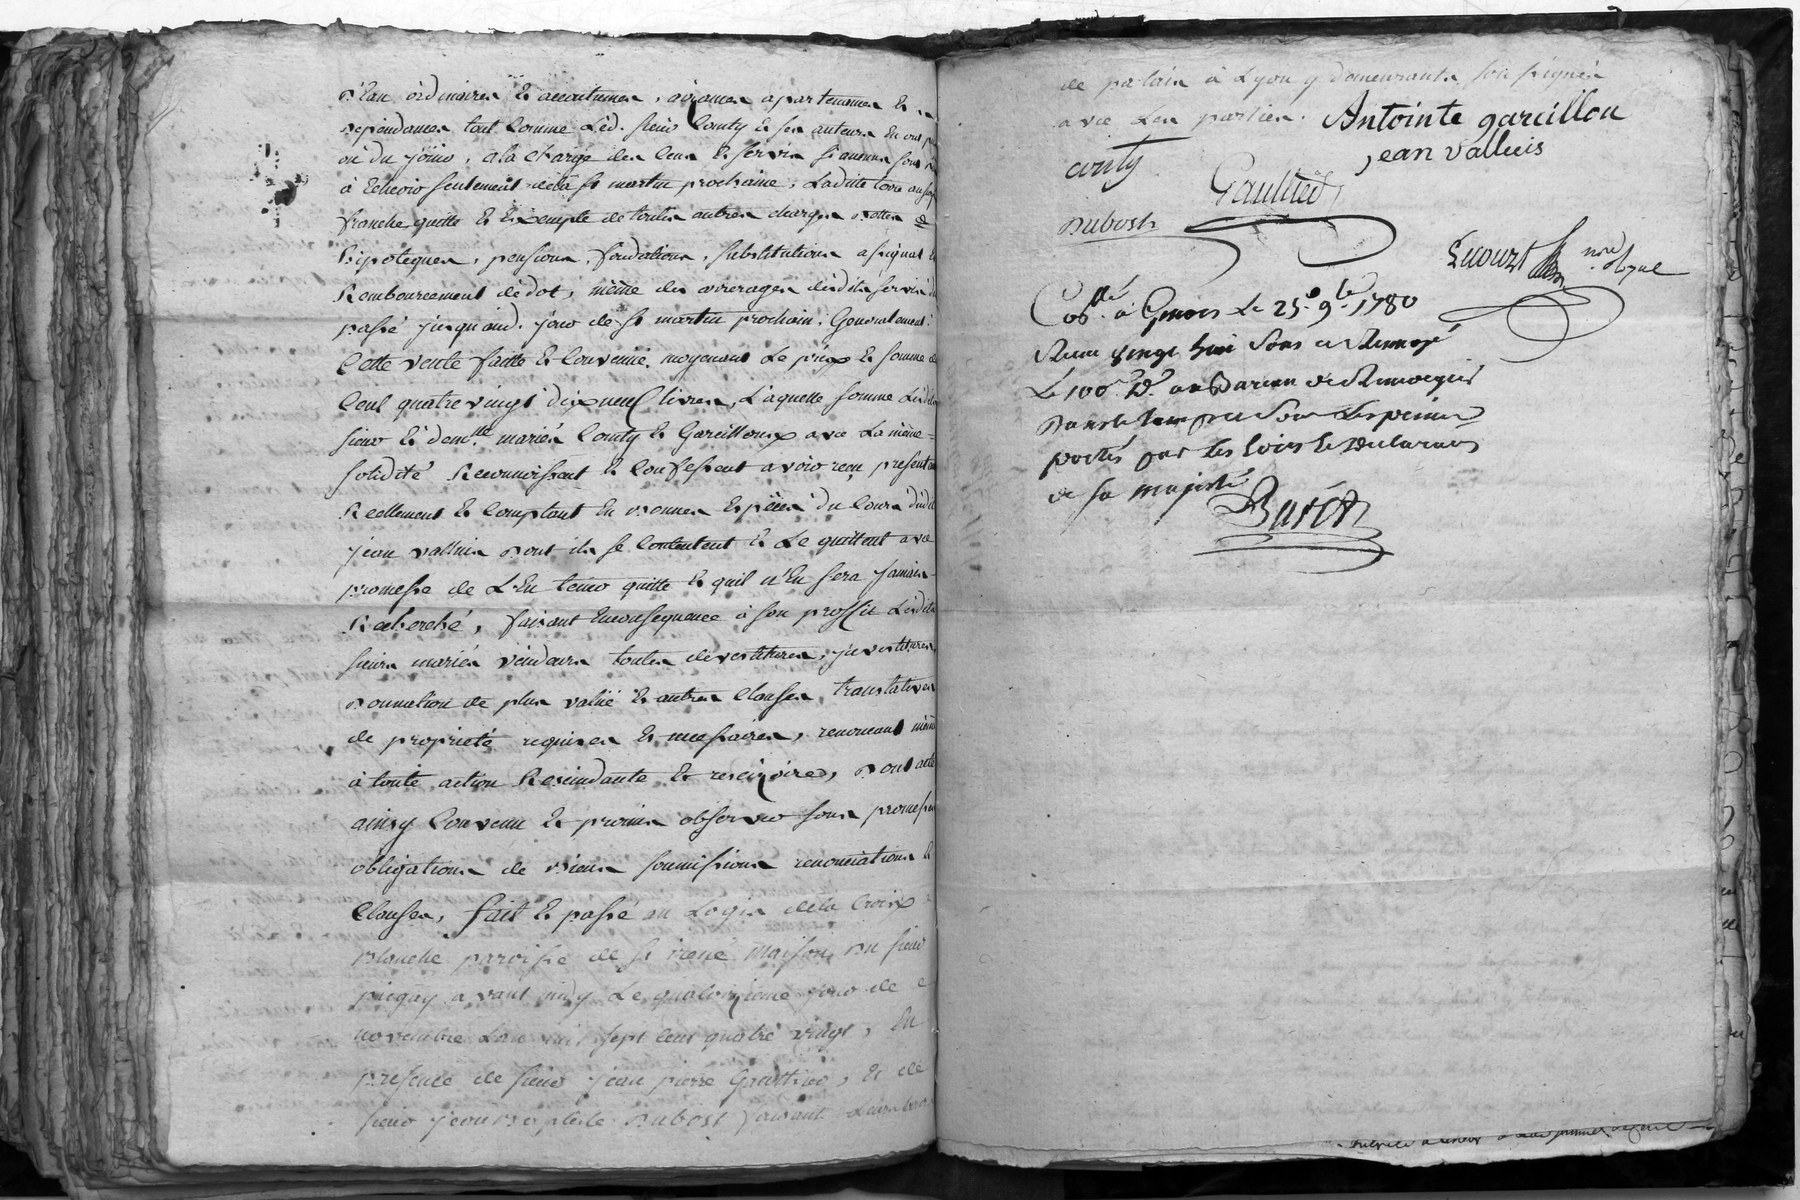 d'Eau ordinaires & accoutumes, aisances apartenances &
dependances tout comme led. sieur Comty & ses auteurs en ont
ou du joüir, a la charge des Cens & servis si aucuns sont
à Echeoir seulement de la st martin prochaine, Ladite terre
franche quitte & Exempte de toutes autres charges dettes &
hipoteques, pensions, fondations, substitutions assignat
Remboursement de dot, même des arrerages desdits servis du
passé jusqu'aud. jour de st martin prochain. Generalement
Cette vente faitte & Convenüe moyenant Le prix & somme de
Cent quatre vingt dix neuf livres, Laquelle somme Lesdits
sieur & demlle mariés Comty & Garcilloux avec La même
solidité Reconnoissent & Confessent avoir reçu presentement
Reellement & Comptant En bonnes Especes du Cours dudit
jean valluis dont ils se Contentent & Le quittent avec
promesse de L'En tenir quitte & quil n'En sera jamais
Recherché, faisant Enconsequence à son proffit Lesdits
sieurs mariés vendeurs toutes devestitures, jnvestitures,
donnation de plus vallüe & autres Clauses translatives
de proprieté requises & necessaires, renonçant même
à toute action Rescindante & rescizoire, dont acte
ainsy Convenu & promis observer sous promesses
obligations de biens soumissions renonciations &
Clauses, fait & passé au Logis de la Croix
blanche paroisse de st irené maison du sieur
pingay avant midy Le quatorzieme jour de
novembre L'an mil sept Cent quatre vingt, En
presence de sieur jean pierre Gaultier, & de
sieur jean Baptiste Dubost savant Leurs
de palais à Lyon y demeurants soussignés
avec Les parties. Antointe garcillou
comty jean valluis
Gaultier
Dubost
Lecourt nre Royal
Collé. à Genis Le 25e 9bre 1780
Reçu vingt huit sous
Le 100e De
dans le tems sous Les peines
portés par Les Loix & Declarations
de sa majesté
Buret